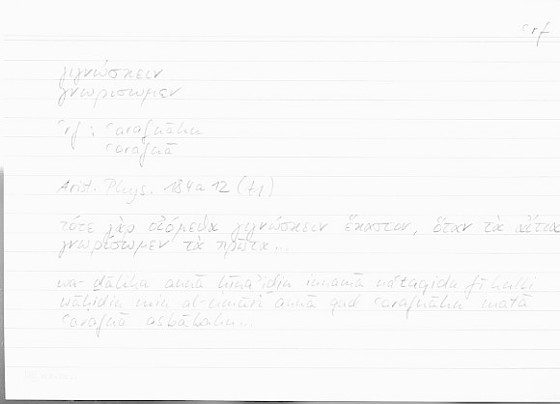 ʿrf
γιγνώσκειν
γνωρίσωμεν
ʿrf : ʿarafnāhu
ʿarafnā
Arist. Phys. 184a12 (1,1)
τότε γὰρ οἰόμεθα γιγνώσκειν ἕκαστον, ὅταν τὰ αἴτια
γνωρίσωμεν τὰ πρῶτα...
wa-ḏālika annā ḥīnaʾiḏin innamā naʿtaqidu fī kulli
wāḥidin min al-umūri annā qad ʿarafnāhu matā
ʿarafnā asbābahu...